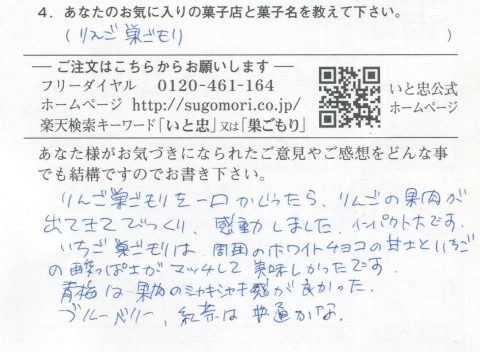 4．あなたのお気に入りの菓子店と菓子名を教えて下さい。
（りんご巣ごもり）
― ご注文はこちらからお願いします ―
フリーダイヤル　0120-461-164
ホームページ　http://sugomori.co.jp/
楽天検索キーワード「いと忠」又は「巣ごもり」
いと忠公式
ホームページ
あなた様がお気づきになられたご意見やご感想をどんな事
でも結構ですのでお書き下さい。
りんご巣ごもりを一口かじったら、りんごの果肉が
出てきてびっくり、感動しました。インパクト大です。
いちご巣ごもりは、周囲のホワイトチョコの甘さといちご
の酸っぱさがマッチして美味しかったです。
青梅は果肉のシャキシャキ感が良かった。
ブルーベリー、紅茶は普通かな。